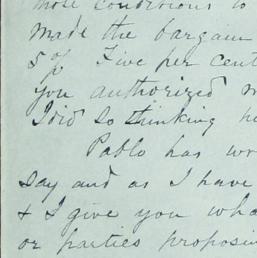 those conditions to
made the bargain
5 %. Five per cent
you authorized m
I did so thinking h
Pablo has wr
say and as I have
& I give you wha
or parties proposin